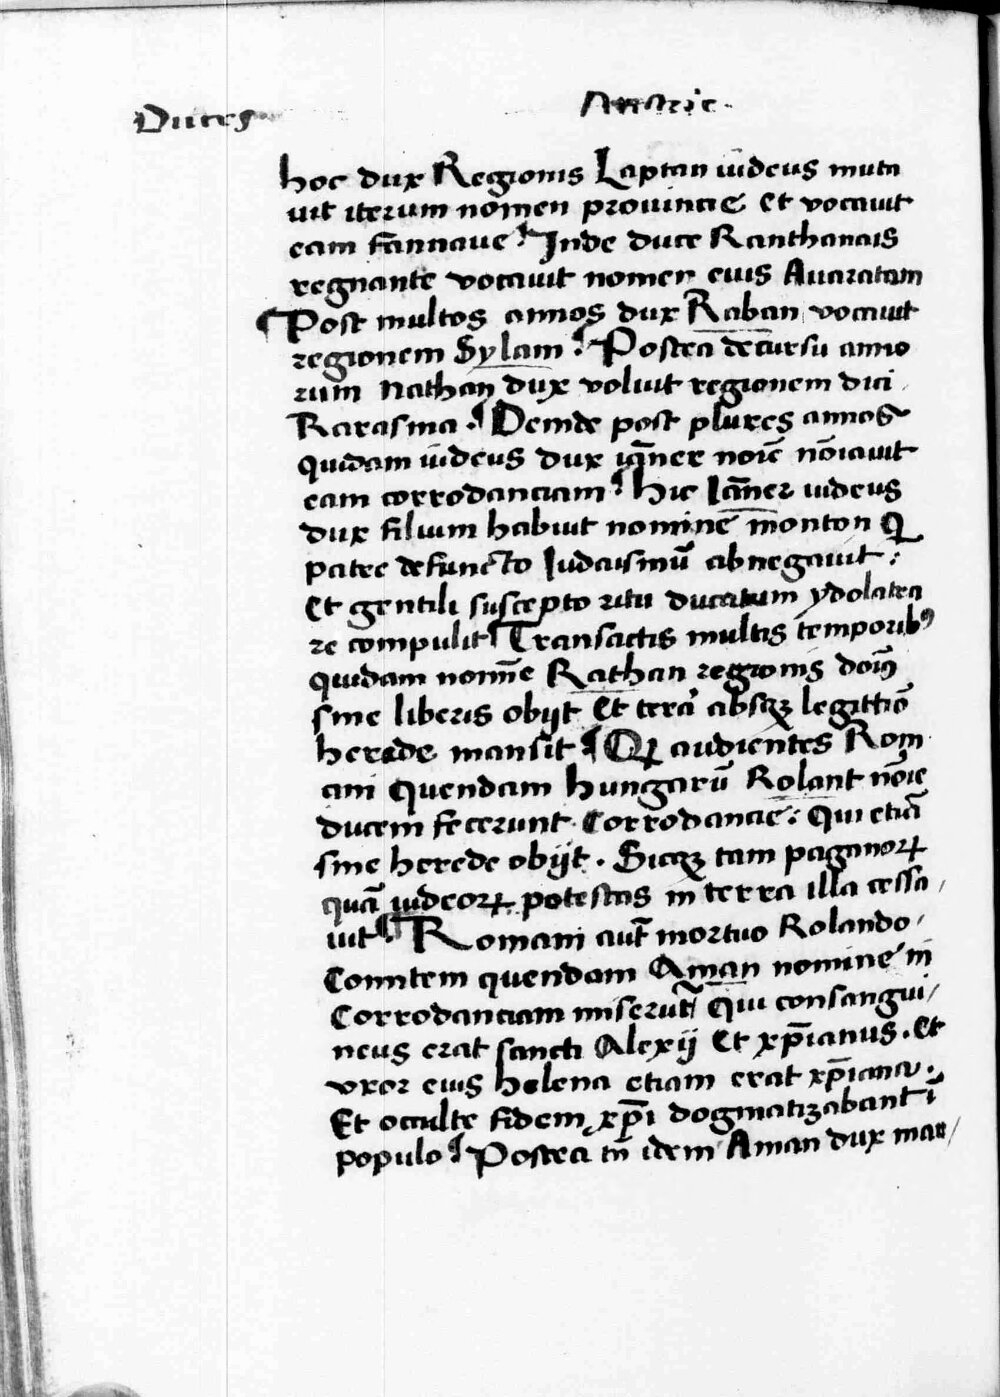 Duces Austrie.
hoc dux Regionis Laptan iudeus muta
uit iterum nomen prouincie Et vocauit
eam fannaue ¶ Inde duce Ranthanais
regnante vocauit nomen eius Auaratam
¶ Post multos annos dux Raban vocauit
regionem Sylam . ¶ Postea decursu anno
rum nathan dux voluit regionem dici
Rarasma . ¶ Deinde post plures annos
quidam iudeus dux ia̅ner noi̅e no̅iauit
eam corrodanciam ¶ hic Ia̅ner iudeus
dux filium habuit nomine monton Q
patre defuncto Iudaismu̅ abnegauit :
Et gentili suscepto ritu ducatum ydolatra
re compulit ¶ Transactis multis temporibꝰ
quidam nomi̅e Rathan regionis do̅iꝰ
sine liberis obijt Et terra absqꝫ legittio̅
herede mansit ¶ Qꝛ audientes Rom
ani quendam hungaru̅ Rolant no̅ie
ducem fecerunt Corrodancie : Qui etia̅
sine herede obijt . Sicqꝫ tam paganoꝝ
qua̅ iudeoꝝ potestas in terra illa cessa /
uit ¶ Romani aut̅ mortuo Rolando /
Comitem quendam Aman nomine in
Corrodanciam miseru̅t Qui consangui /
neus erat sancti Alexij Et xp̅ianus . Et
vxor eius helena etiam erat xp̅iana .
Et occulte fidem xp̅i dogmatizabant i̅
populo ¶ Postea tn̅ idem Aman dux man /